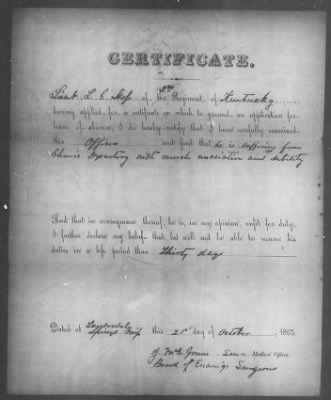 CERTIFICATE.
Lieut L. C. Ross of the 2nd Regiment of Kentucky
having applied for a certificate on which to ground an application for
leave of absence, I do hereby certify that I have carefully examined
this Officer and find that he is suffering from
Chronic Dysentery with much emaciation and debility
And that in consequence thereof, he is, in my opinion, unfit for duty.
I further declare my belief that he will not be able to resume his
duties in a less period than Thirty days
Dated at Lauderdale Springs Miss this 21st day of October, 1863.
Medical Officer.
Board of Exam'g Surgeons